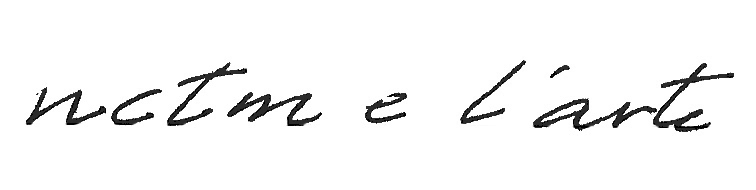 nctm e l'arte